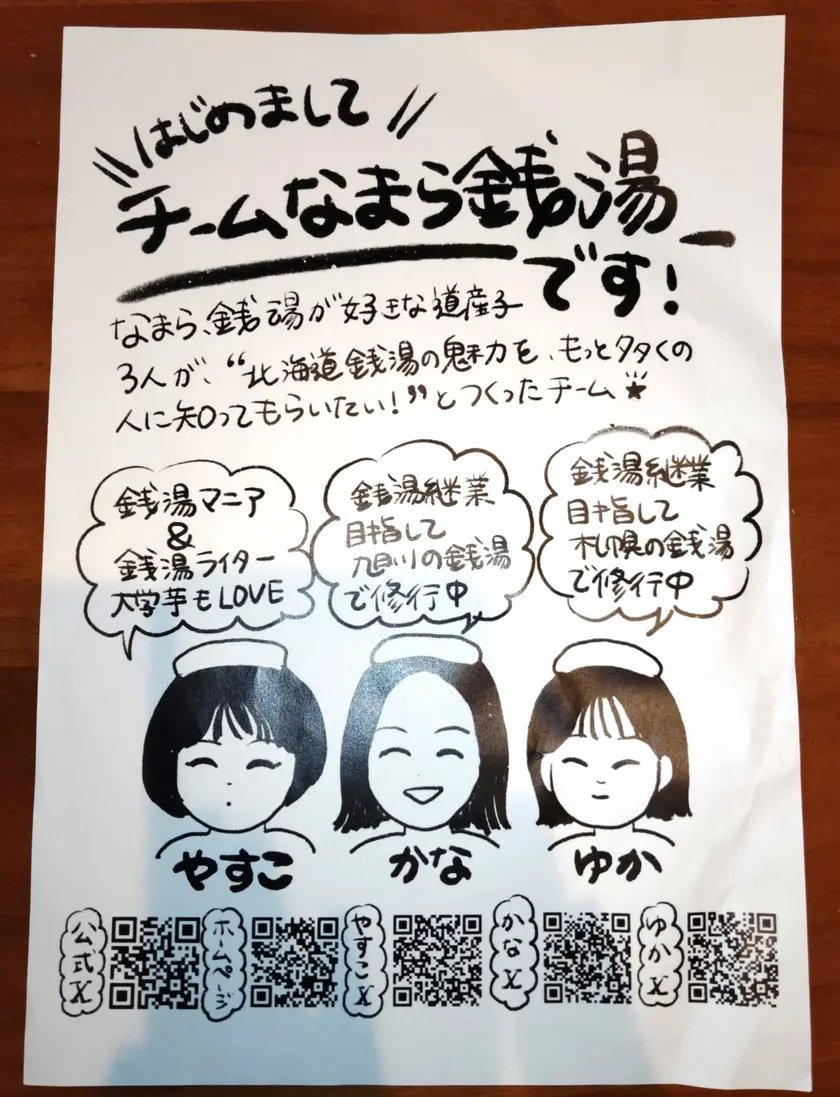 はじめまして
チームなまら銭湯
です!
なまら、銭湯が好きな道産子
3人が、“北海道銭湯の魅力を、もっと多くの
人に知ってもらいたい!”とつくったチーム
銭湯マニア
&
銭湯ライター
大学芋もLOVE
銭湯継業
目指して
旭川の銭湯
で修行中
銭湯継業
目指して
札幌の銭湯
で修行中
やすこ
かな
ゆか
公式X
ホームページ
やすこX
かなX
ゆかX